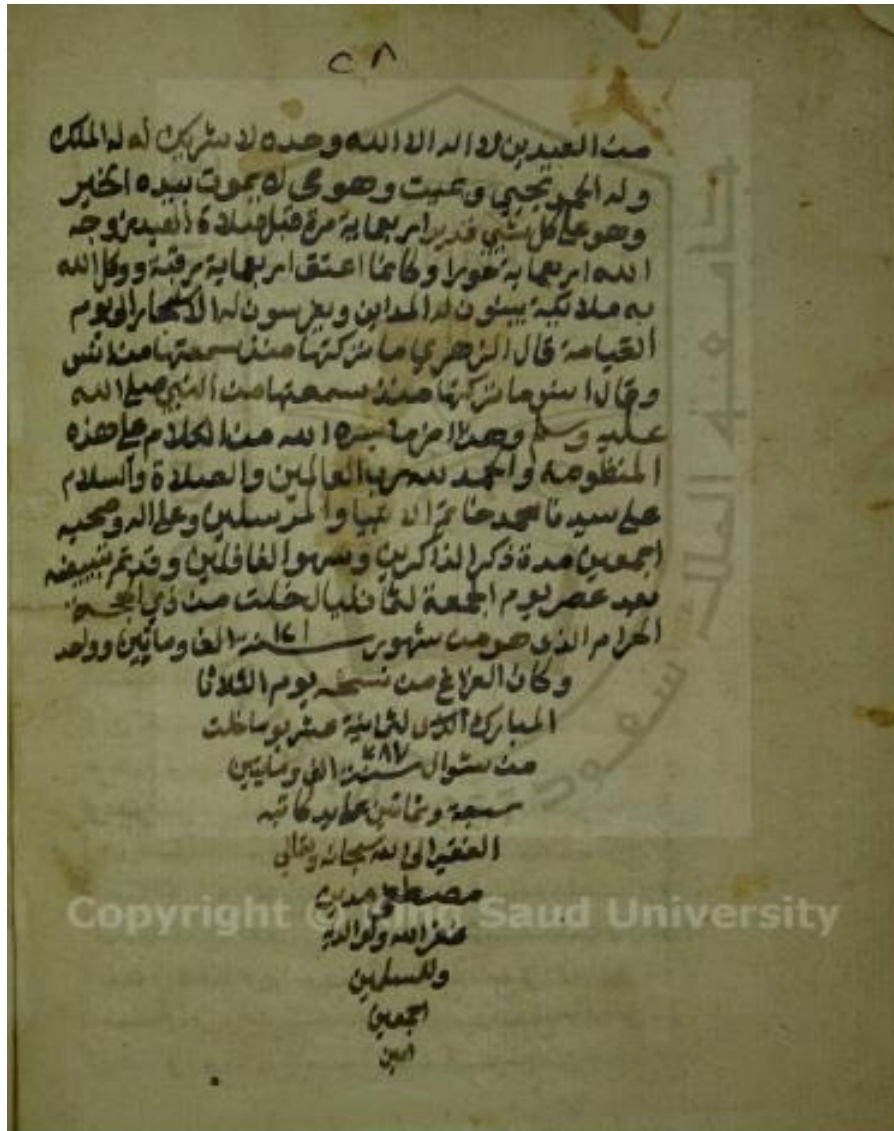 ٢٨
من العيدين لا اله الا الله وحده لا شريك له له الملك
وله الحمد يحيي ويميت وهو حي لا يموت بيده الخير
وهو على كل شيي قدير اربعماية مرة قبل صلاة العيد زوجه
الله اربعماية حورا وكانما اعتق اربعماية رقبة ووكل الله
به ملايكة يبنون له المداين ويغرسون له الاشجار الى يوم
القيامة قال الزهري ما تركتها منذ سمعتها من انس
وقال انس ما تركتها منذ سمعتها من النبي صلى الله
عليه وسلم وهذا اخر ما يسره الله من الكلام على هذه
المنظومة والحمد لله رب العالمين والصلاة والسلام
على سيدنا محمد خاتم الانبيا والمرسلين وعلى اله وصحبه
اجمعين مدة ذكر الذاكرين وسهو الغافلين وقد تم تبييضه
بعد عصر يوم الجمعة لثمان ليال خلت من ذي الحجة
الحرام الذي هو من شهور سنة ١٢٠١ الف ومايتين وواحد
وكان الفراغ من نسخه يوم الثلاثا
المبارك لثمانية عشر يوما خلت
من شوال سنة ١٢٨٧ الف ومايتين
سبعة وثمانين على يد كاتبه
الفقير الى الله سبحانه وتعالى
مصطفى مدين
غفر الله له ولوالديه
وللمسلمين
اجمعين
امين
جامعة الملك سعود
Copyright © King Saud University